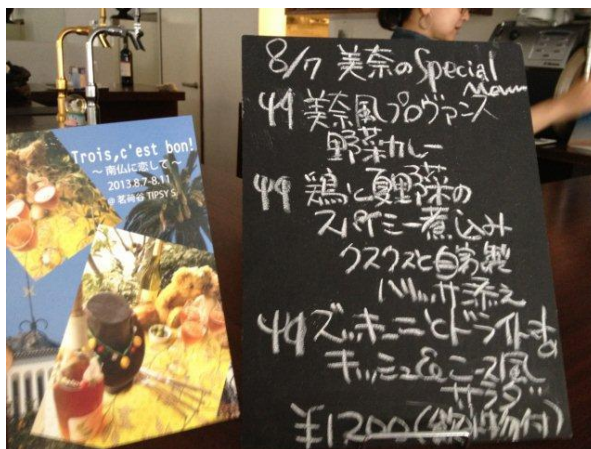 Trois,c'est bon!
～南仏に恋して～
2013.8.7-8.11
@ 茗荷谷 TIPSY S
8/7 美奈のSpecial
Menu
美奈風プロヴァンス
野菜カレー
鶏と夏野菜の
スパイシー煮込み
クスクスと自家製
ハリッサ添え
ズッキーニとドライトマトの
キッシュ&ニース風
サラダ
¥1200(飲み物付)